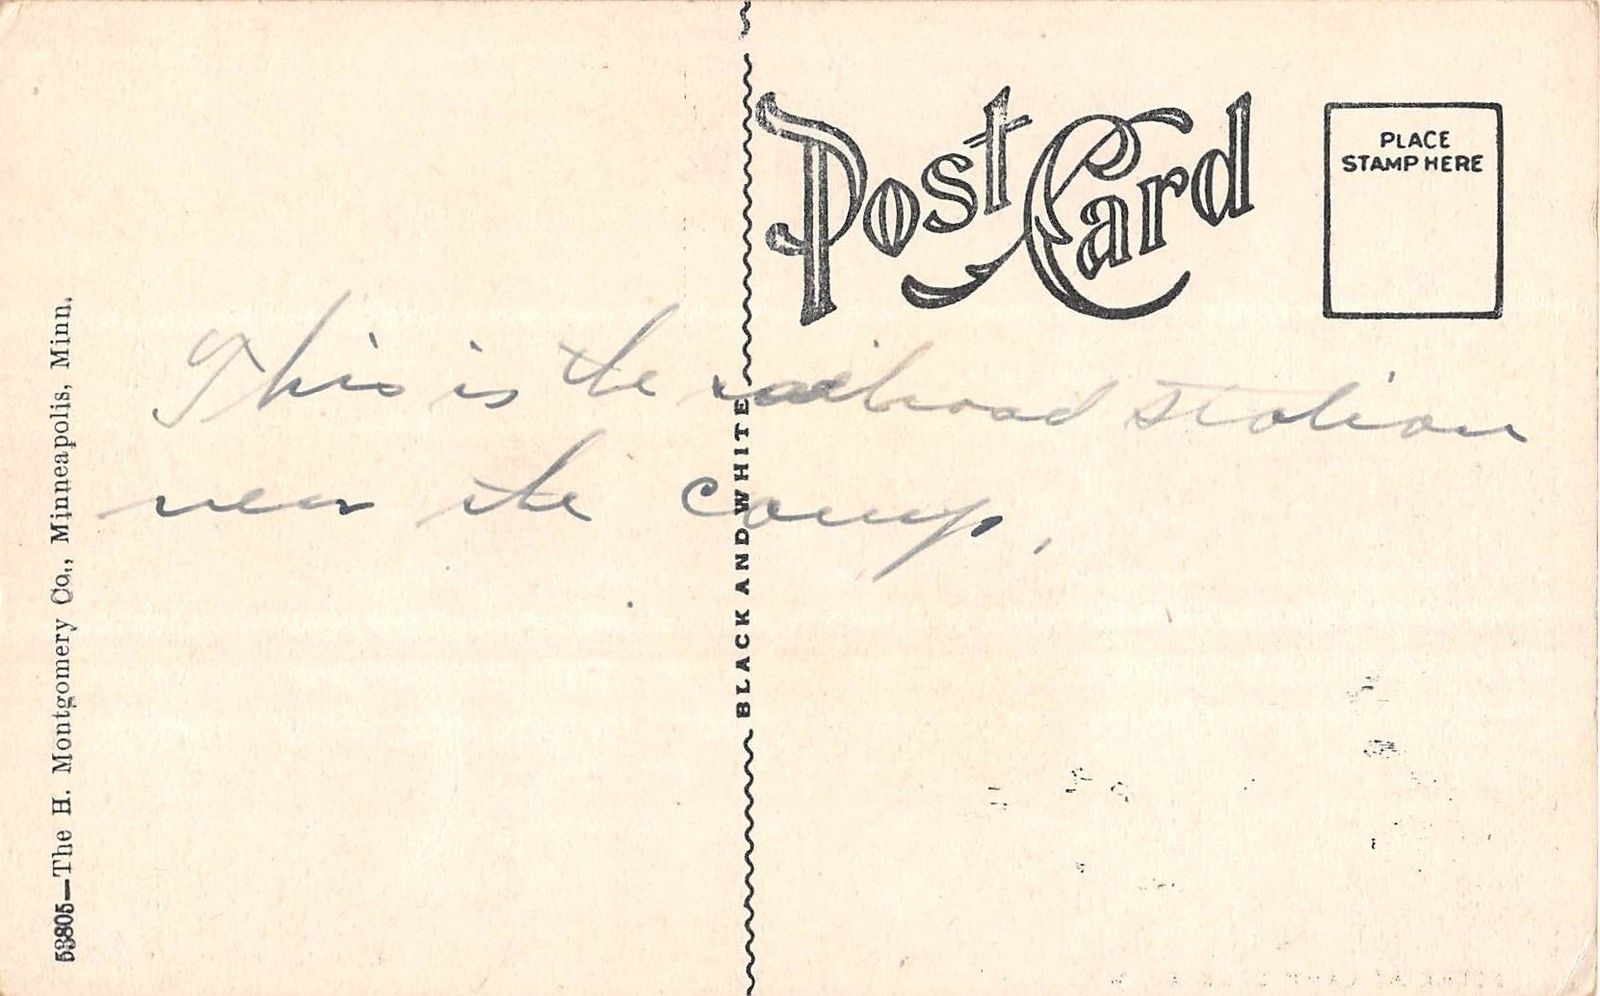 Post Card
PLACE
STAMP HERE
This is the railroad station
near the camp.
BLACK AND WHITE
53805—The H. Montgomery Co., Minneapolis, Minn.